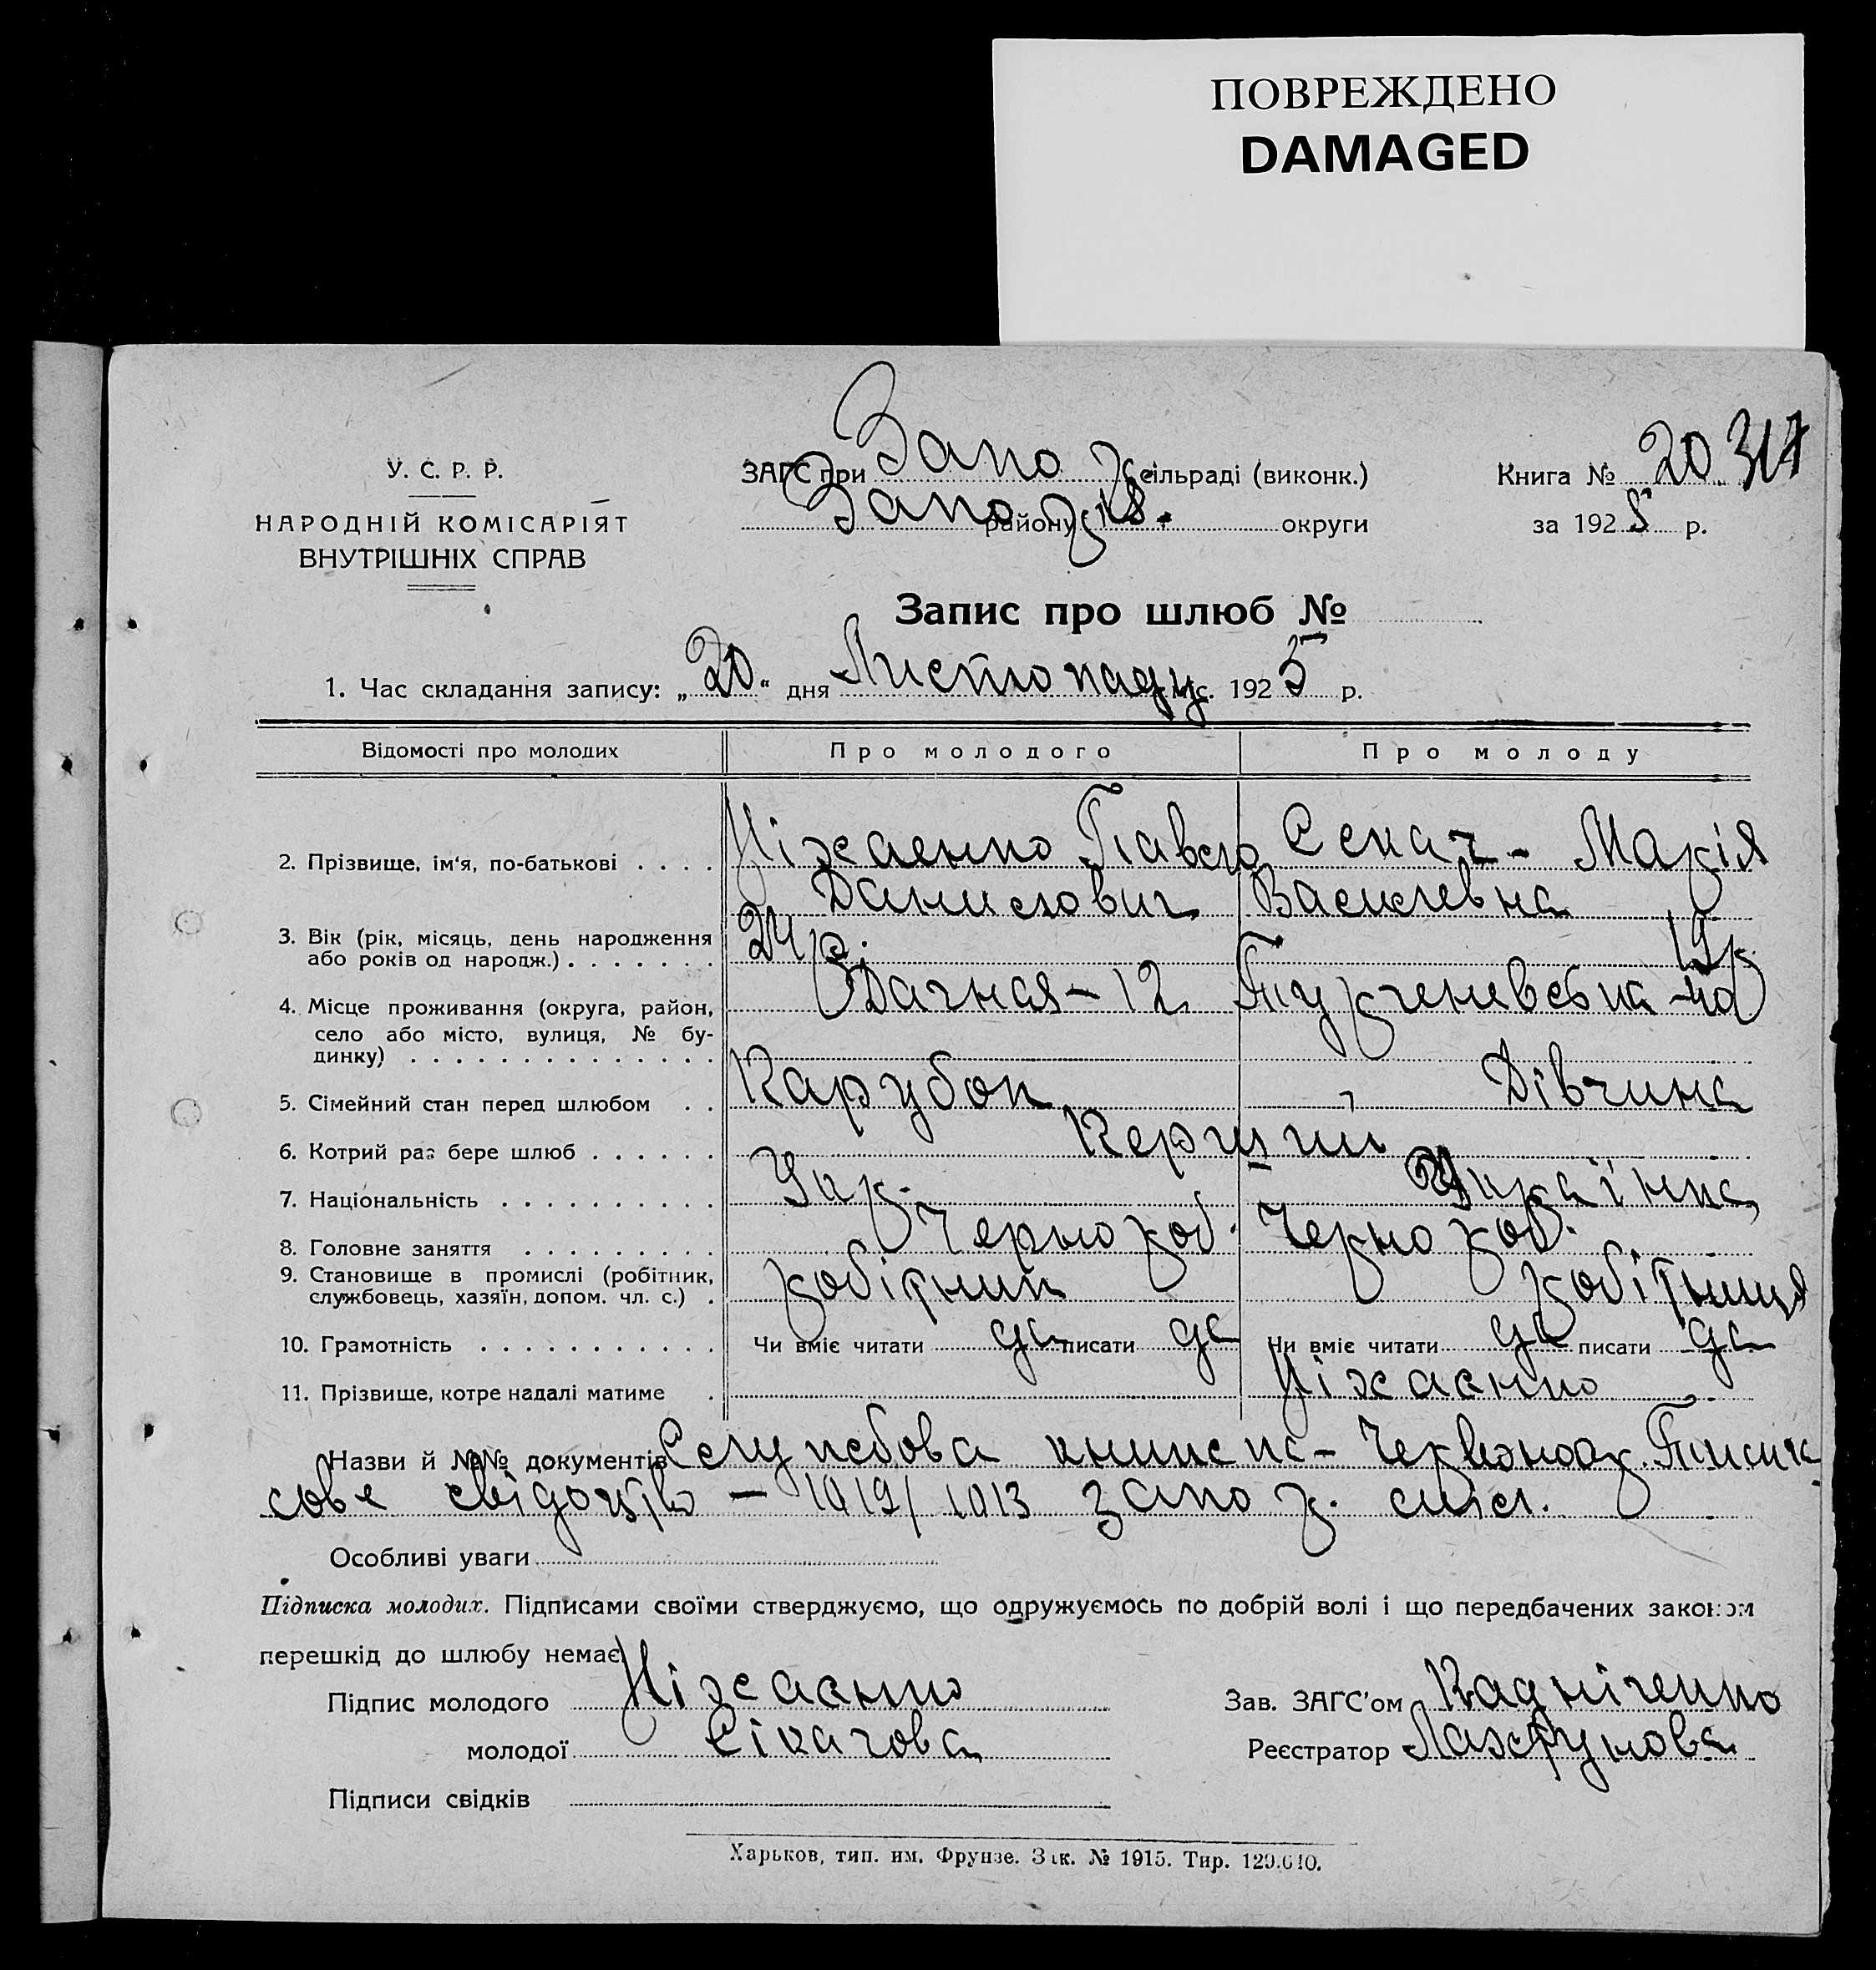 ПОВРЕЖДЕНО
DAMAGED
У. С. Р. Р.
НАРОДНІЙ КОМІСАРІЯТ
ВНУТРІШНІХ СПРАВ
ЗАГС при Запор сільраді (виконк.)
Запоріз. району округи
Книга № 20. 317
за 1925 р.
Запис про шлюб №
1. Час складання запису: „20“ дня Листопаду міс. 1925 р.
Відомості про молодих Про молодого Про молоду
2. Прізвище, ім'я, по-батькові . . . . Ніжаенко Павло Секач - Марія
Данилович Василевна
3. Вік (рік, місяць, день народження 24 р. 19 р.
або років од народж.) . . . . . . .
4. Місце проживання (округа, район, Дачная - 12 Тургеневська - 40
село або місто, вулиця, № бу-
динку) . . . . . . . . . . . . . .
5. Сімейний стан перед шлюбом . . Парубок Дівчина
6. Котрий раз бере шлюб . . . . . . Перший
7. Національність . . . . . . . . . . Укр. Украінка
8. Головне заняття . . . . . . . . . Чернороб. Чернороб.
9. Становище в промислі (робітник, робітник робітниця
службовець, хазяїн, допом. чл. с.) .
10. Грамотність . . . . . . . . . . . Чи вміє читати да писати да Чи вміє читати да писати да
11. Прізвище, котре надалі матиме . Ніжаенко
Назви й №№ документів Служебова книжка - Червоноар. Тимча
сове свідоцтво - 1919/1013 запор.
Особливі уваги
Підписка молодих. Підписами своїми стверджуємо, що одружуємось по добрій волі і що передбачених законом
перешкід до шлюбу немає.
Підпис молодого Ніжаенко Зав. ЗАГС'ом Кадніченко
молодої Сікачова Реєстратор
Підписи свідків
Харьков, тип. им. Фрунзе. Зак. № 1915. Тир. 129.640.